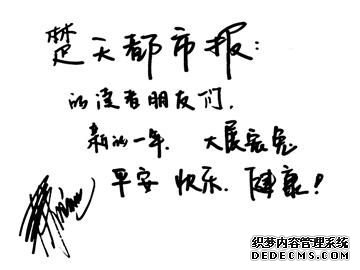 楚天都市报：
的读者朋友们，
新的一年，大展宏兔
平安 快乐，健康！
织梦内容管理系统
DEDECMS.COM